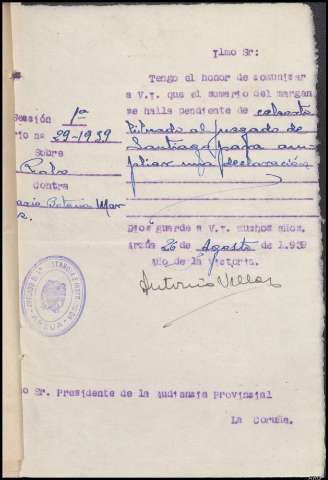 Ylmo Sr:
Tengo el honor de comunicar
a V.Y. que el sumario del margen
se halla pendiente de
Santiago para am
pliar una declaración
Sección 1ª
rio nº 29-1939
Sobre
Robo
Contra
Dios guarde a V.Y. muchos años.
Arzúa 26 de Agosto de 1.939
Año de la Victoria.
Antonio Villar
ARZUA
o Sr. Presidente de la Audiensia Provinsial
La Coruña.